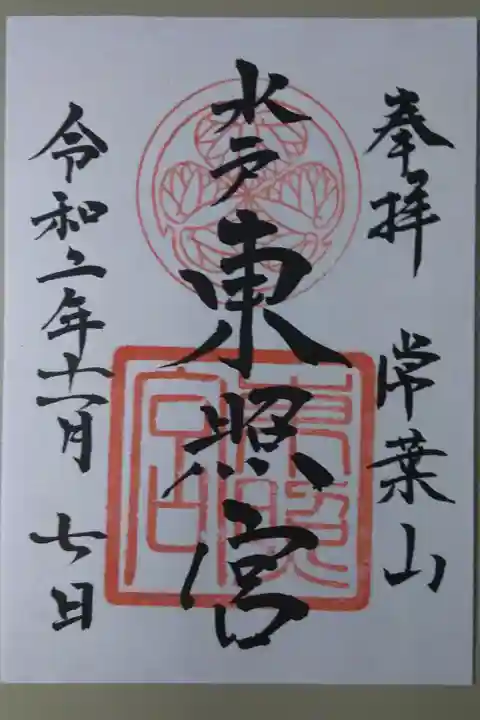 奉拝 常葉山
水戸東照宮
令和二年十一月七日
東照宮